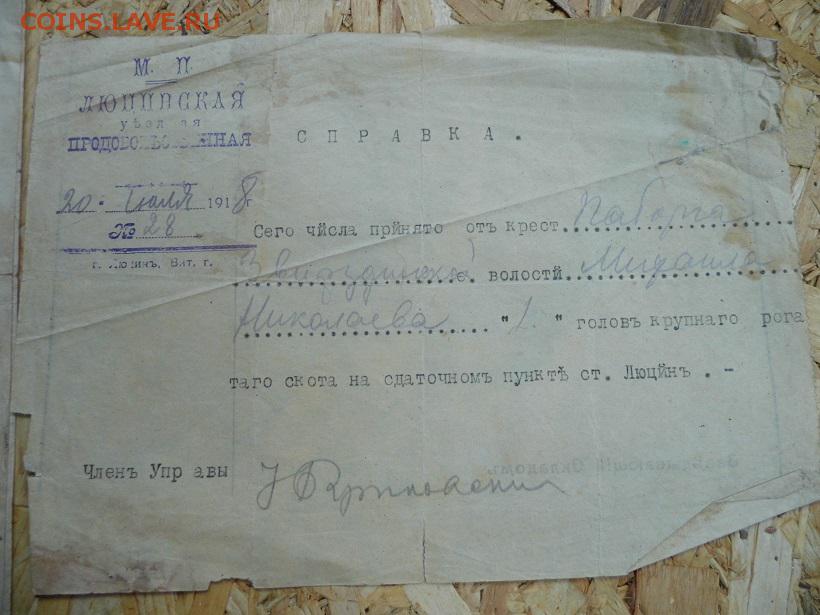 COINS.LAVE.RU
М. П.
ЛЮЦИНСКАЯ
уѣздная
ПРОДОВОЛЬСТВЕННАЯ
20 Июля 1918 г.
№ 28
г. Люцинъ, Вит. г.
СПРАВКА.
Сего числа принято отъ крест.
Звирздинской волости Михаила
Николаева "1." головъ крупнаго рога
таго скота на сдаточномъ пунктѣ ст. Люцинъ.-
Членъ Управы
Завѣдывающій Складомъ